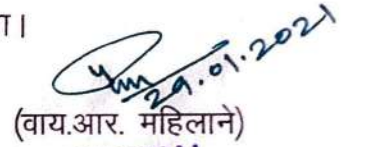 ा।
29.01.2021
(वाय.आर. महिलाने)